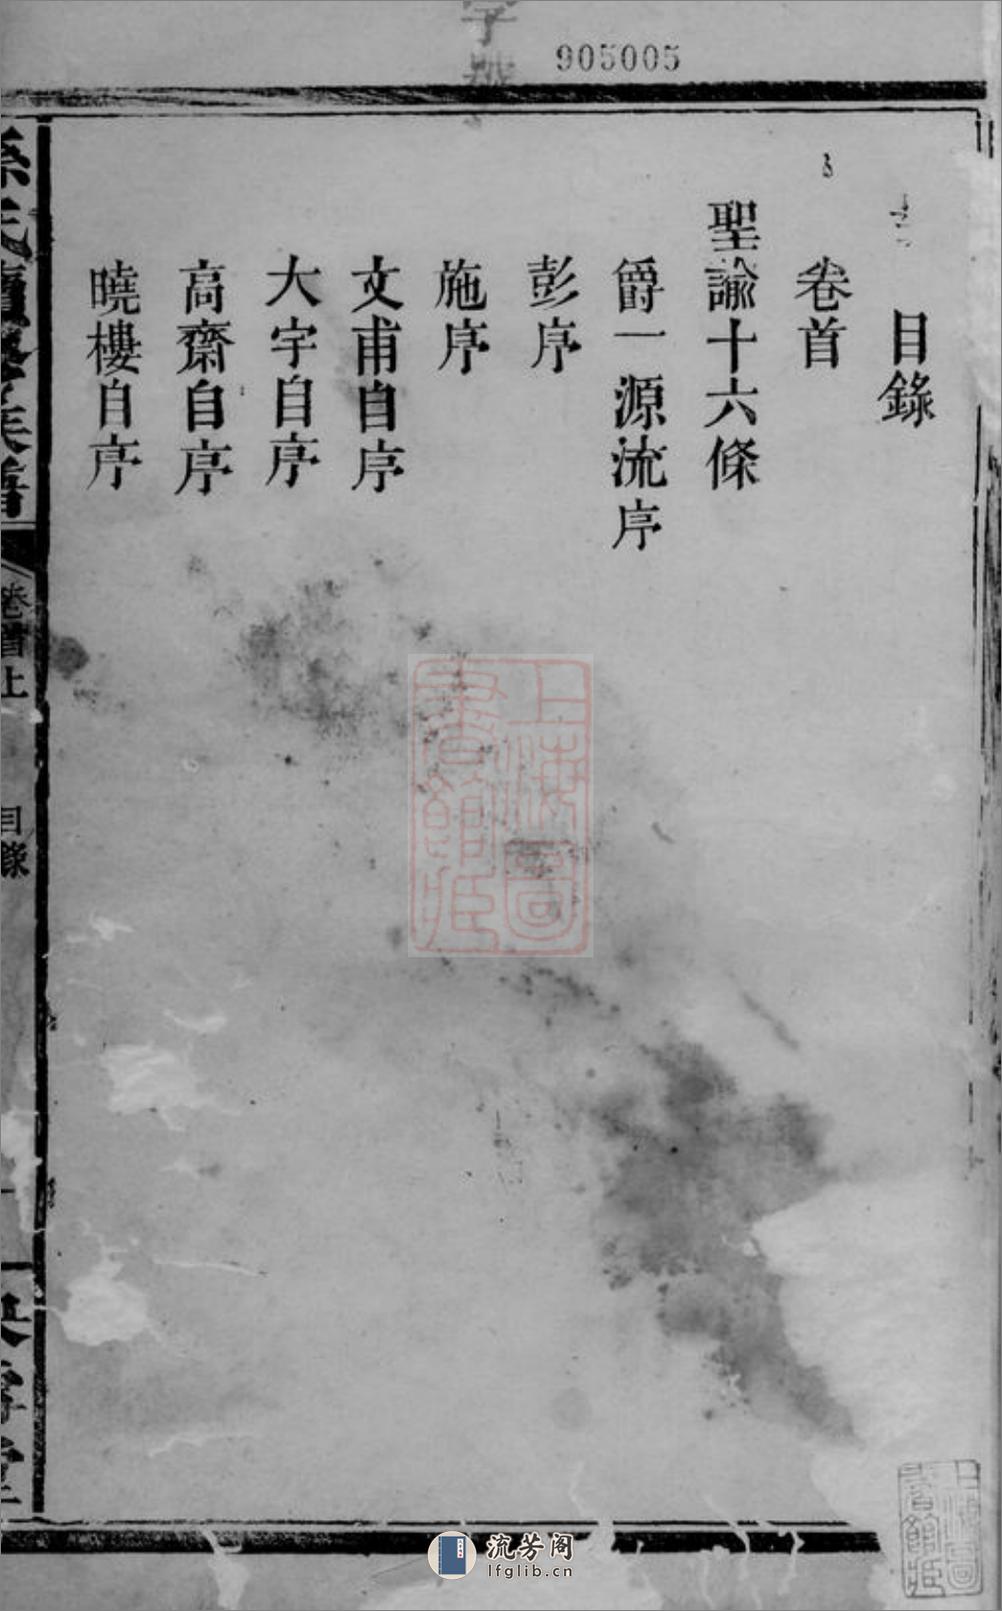 字號
905005
目錄
卷首
聖諭十六條
爵一源流序
彭序
施序
文甫自序
大宇自序
高齋自序
曉樓自序
孫氏續修族譜
卷首上
目錄
上海圖書館藏
流芳阁
lfglib.cn